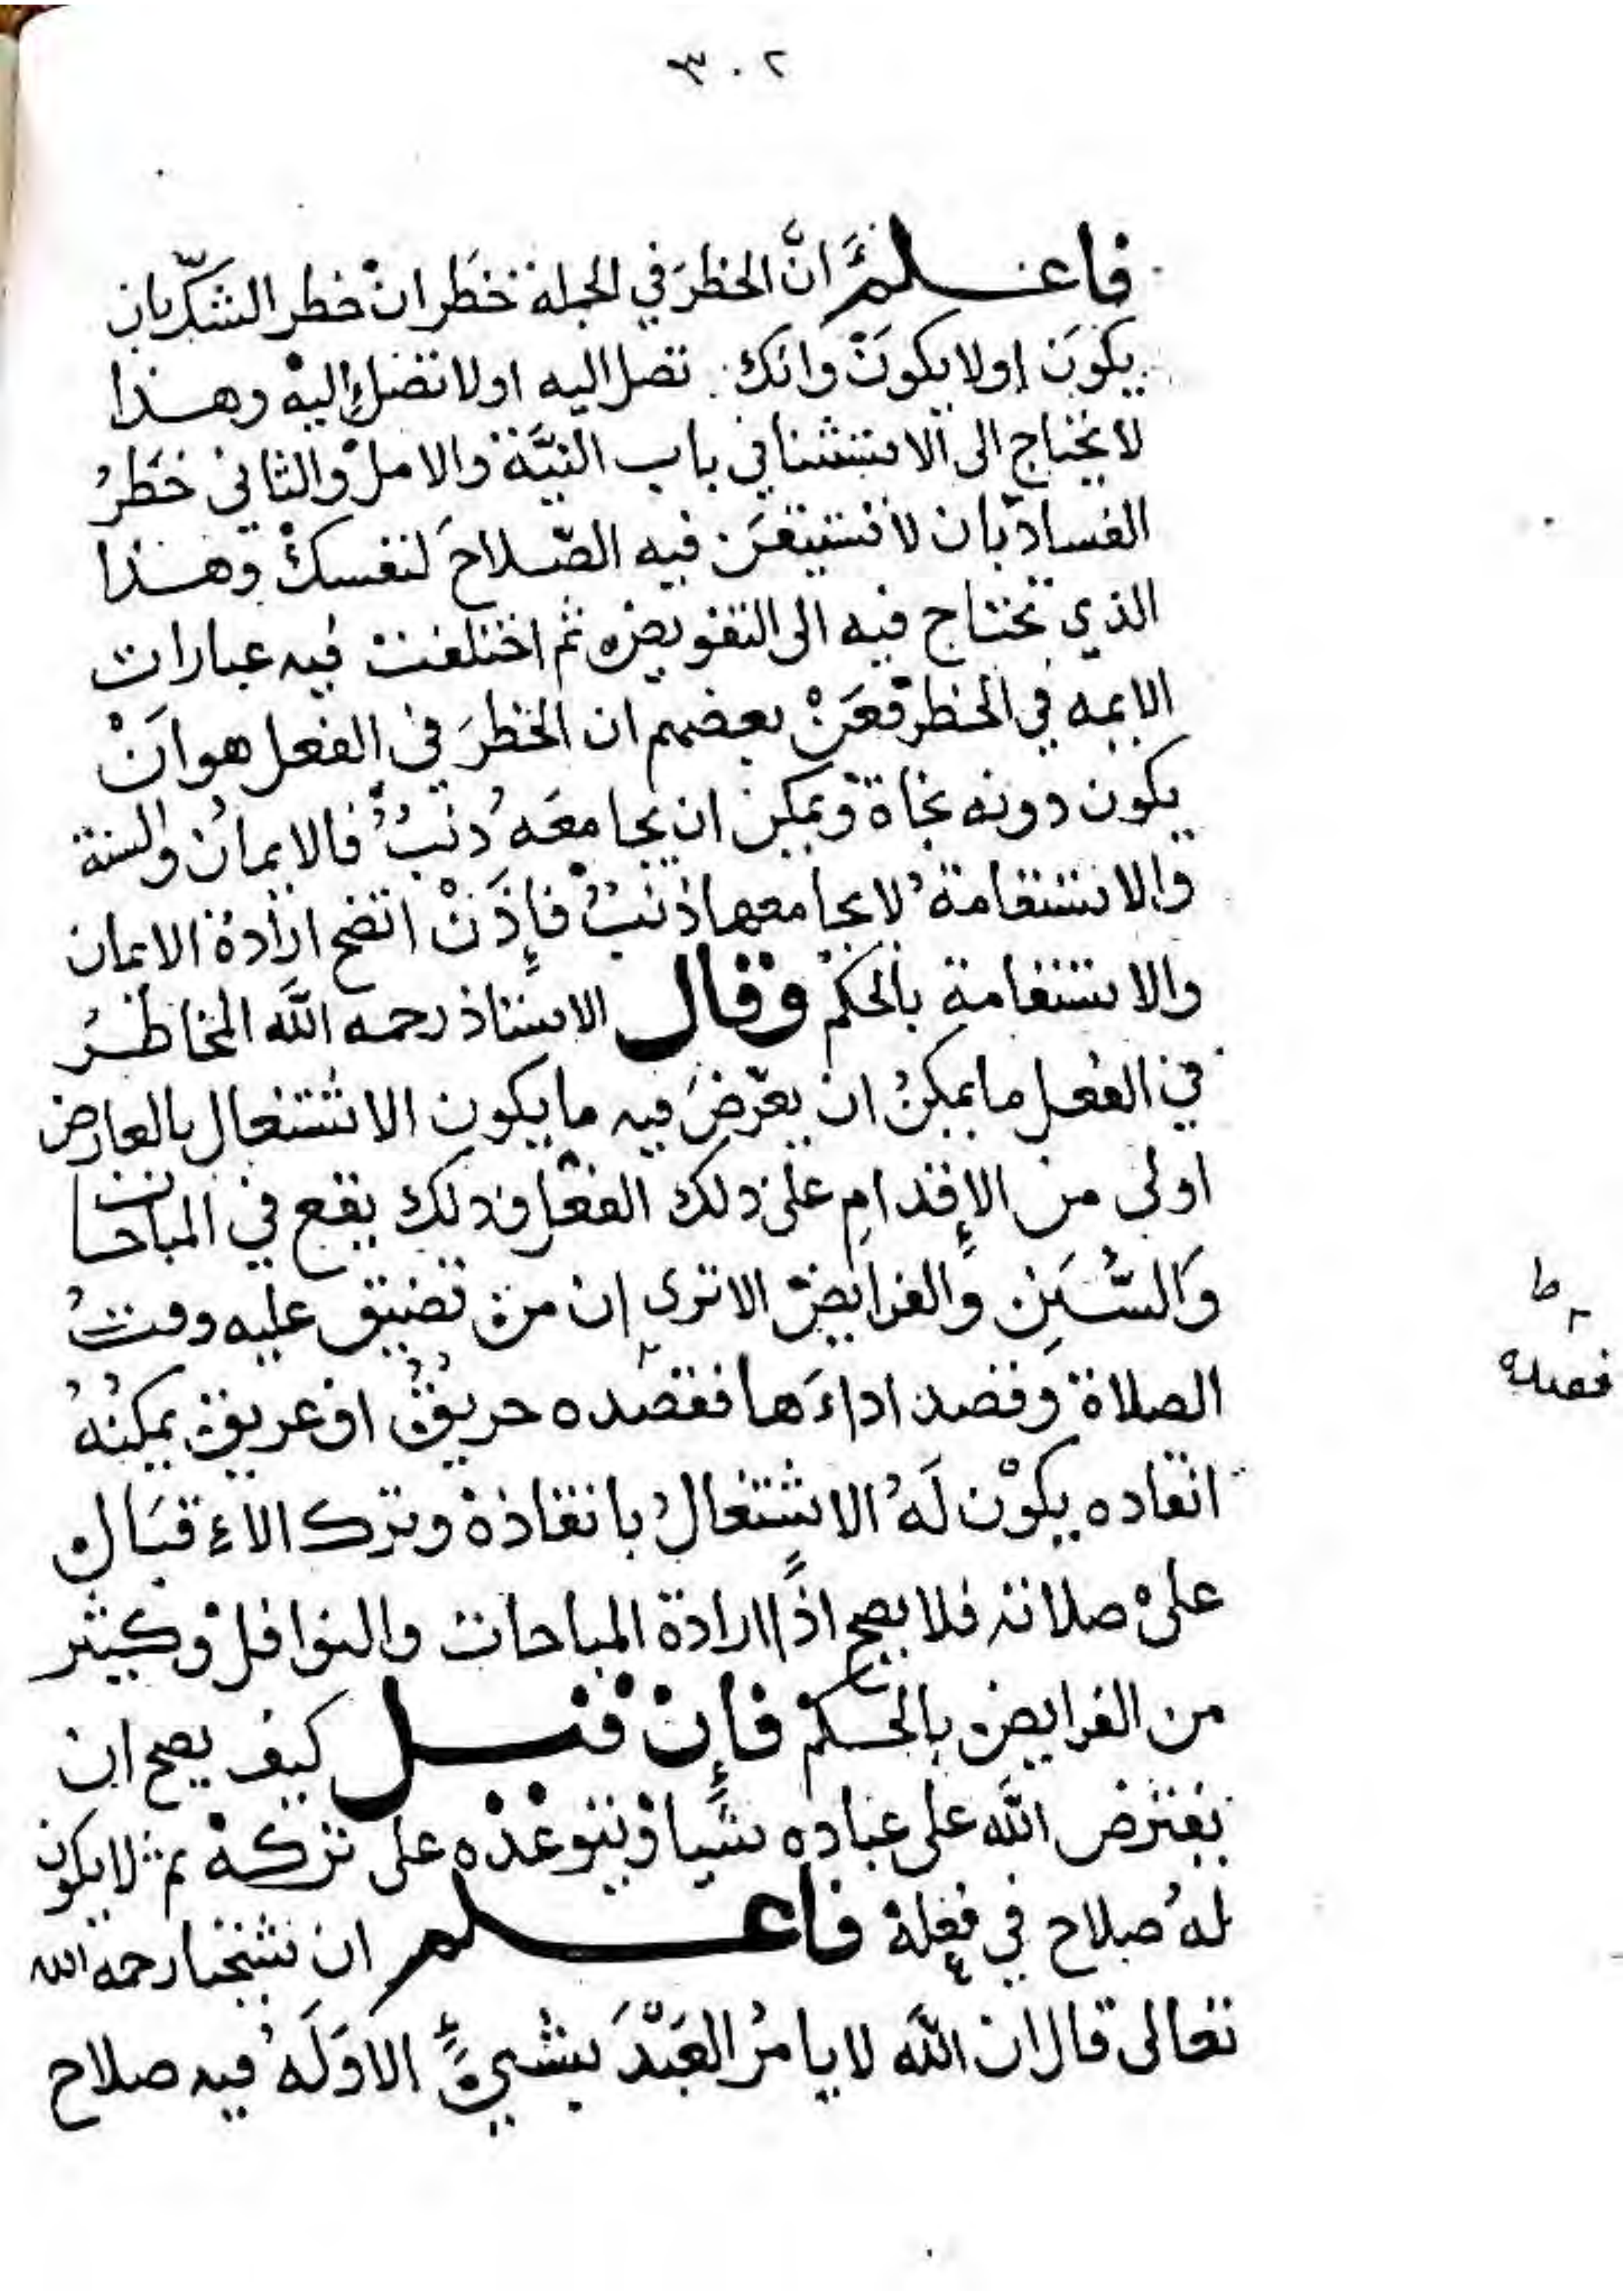 ٣٠٢
فاعلم انَّ الخطرَ في الجملة خطران خطر الشكّ بان
يكونَ اولا يكونَ وانك تصل اليه اولا تصل اليه وهذا
لا يحتاج الى الاستثنا في باب النيَّة والامل والثاني خَطَرُ
الفساد بان لا تستيقَن فيه الصّلاحَ لنفسك وهذا
الذي تحتاج فيه الى التفويض ثم اختلفت فيه عبارات
الايمه في الخطر فعَنْ بعضهم ان الخطرَ في الفعل هو انْ
يكون دونه نجاة ويمكن ان يجامعَه ذنبٌ فالايمانُ والسنة
والاستقامةُ لا يجامعها ذنبٌ فإذَنْ اتضح ارادة الايمان
والاستقامةِ بالحكم وقال الاستاذ رحمه اللّه المخاطرُ
في الفعل ما يمكنُ ان يعرّضَ فيه ما يكون الاشتغال بالعارض
اولى من الإقدامِ على ذلك الفعل وذلك يقع في المباحات
وَالسُّنَنِ والفرايض الا ترى إن من تضيق عليه وقتُ
الصلاة وقصد اداءَها فقصده حريقٌ او غريق يمكنُهُ
انقاده يكوْن لَهُ الاشتغالُ بانقاذه وترك الاءقبَال
على صلاته فلا يصح اذًا ارادة المباحات والنوافل وكثير
من الفرايض بالحكم فإنْ قيل كيف يصح ان
يفترض اللّه على عباده شيا ويتوعده على تركه ثم لا يكون
لهُ صلاح في فعله فاعلم ان شيخنا رحمه الله
تعالى قال ان اللّه لا يامرُ العَبْدَ بشيءٍ الا وَلَهُ فيه صلاح
ط
فصده